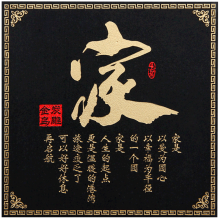 家
家是
以爱为圆心
以幸福为半径
的一个圆
家是
人生的起点
更是温暖的港湾
旅途疲乏了
可以好好休息
再启航